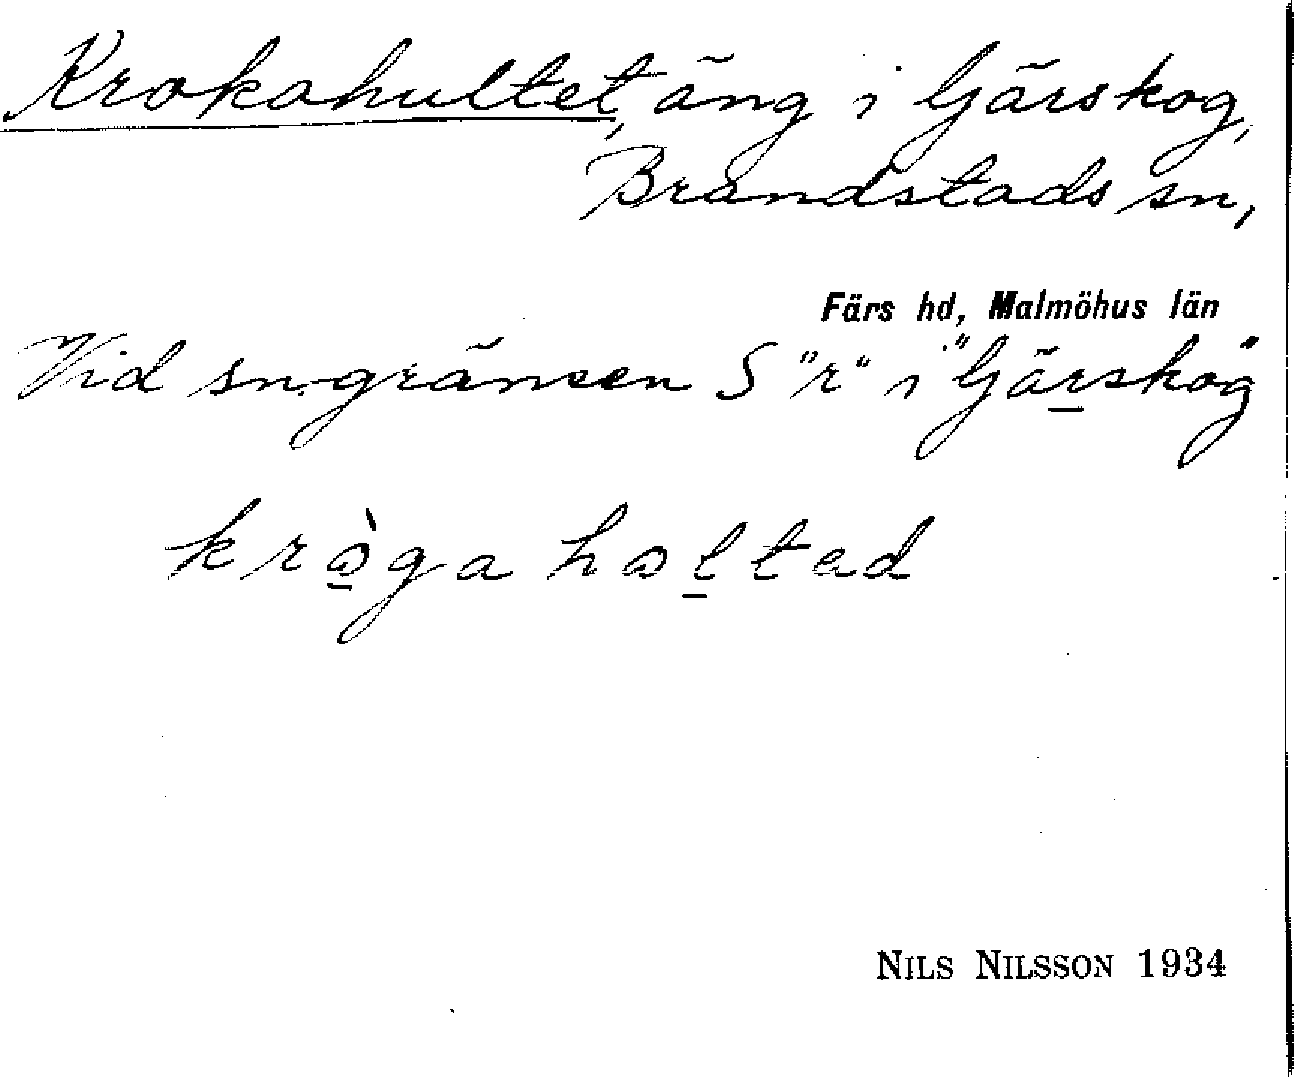 Krokahultet, äng i Ljärskog,
Brandstads sn,
Färs hd, Malmöhus län
Vid sn.gränsen S "r" i "Ljärskog"
kròga holtad
NILS NILSSON 1934